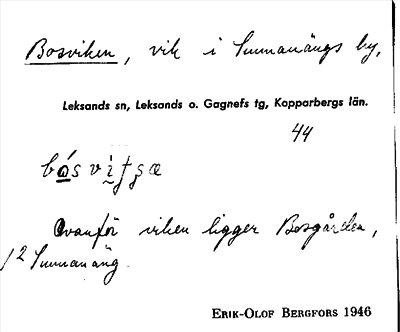 Bosviken, vik i Sunnanängs by,
Leksands sn, Leksands o. Gagnefs tg, Kopparbergs län.
44
Ovanför viken ligger Bosgården,
12 Sunnanäng.
ERIK-OLOF BERGFORS 1946